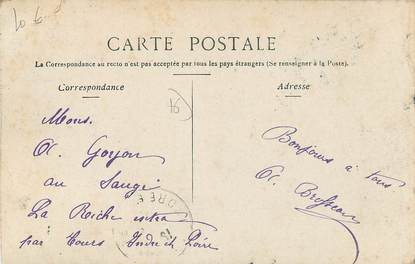 CARTE POSTALE
La Correspondance au recto n'est pas acceptée par tous les pays étrangers (Se renseigner à la Poste).
Correspondance
Adresse
Mons.
A. Goyon
au Sangi
La Riche extra
par Tours Indre et Loire
Bonjours à tous
A. Brosseau